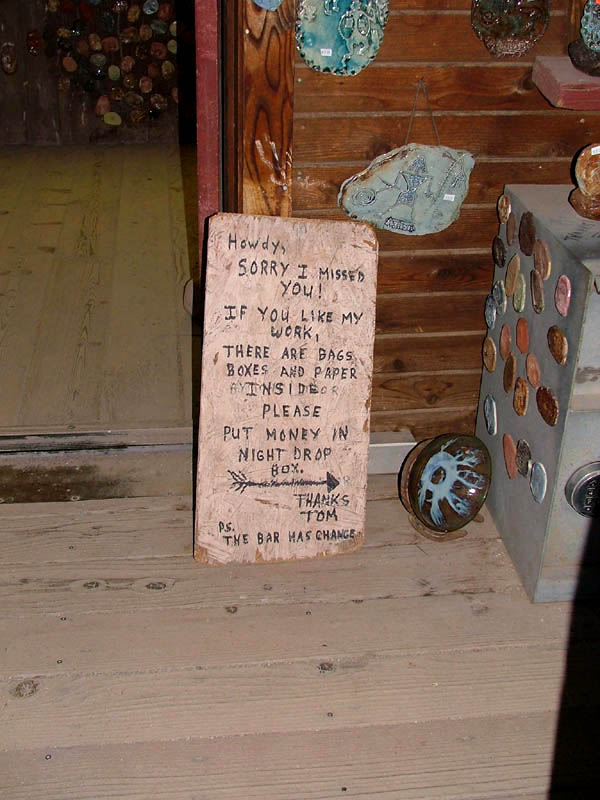 Howdy,
SORRY I MISSED
YOU!
IF YOU LIKE MY
WORK,
THERE ARE BAGS
BOXES AND PAPER
INSIDE
PLEASE
PUT MONEY IN
NIGHT DROP
BOX.
THANKS
TOM
P.S.
THE BAR HAS CHANGE